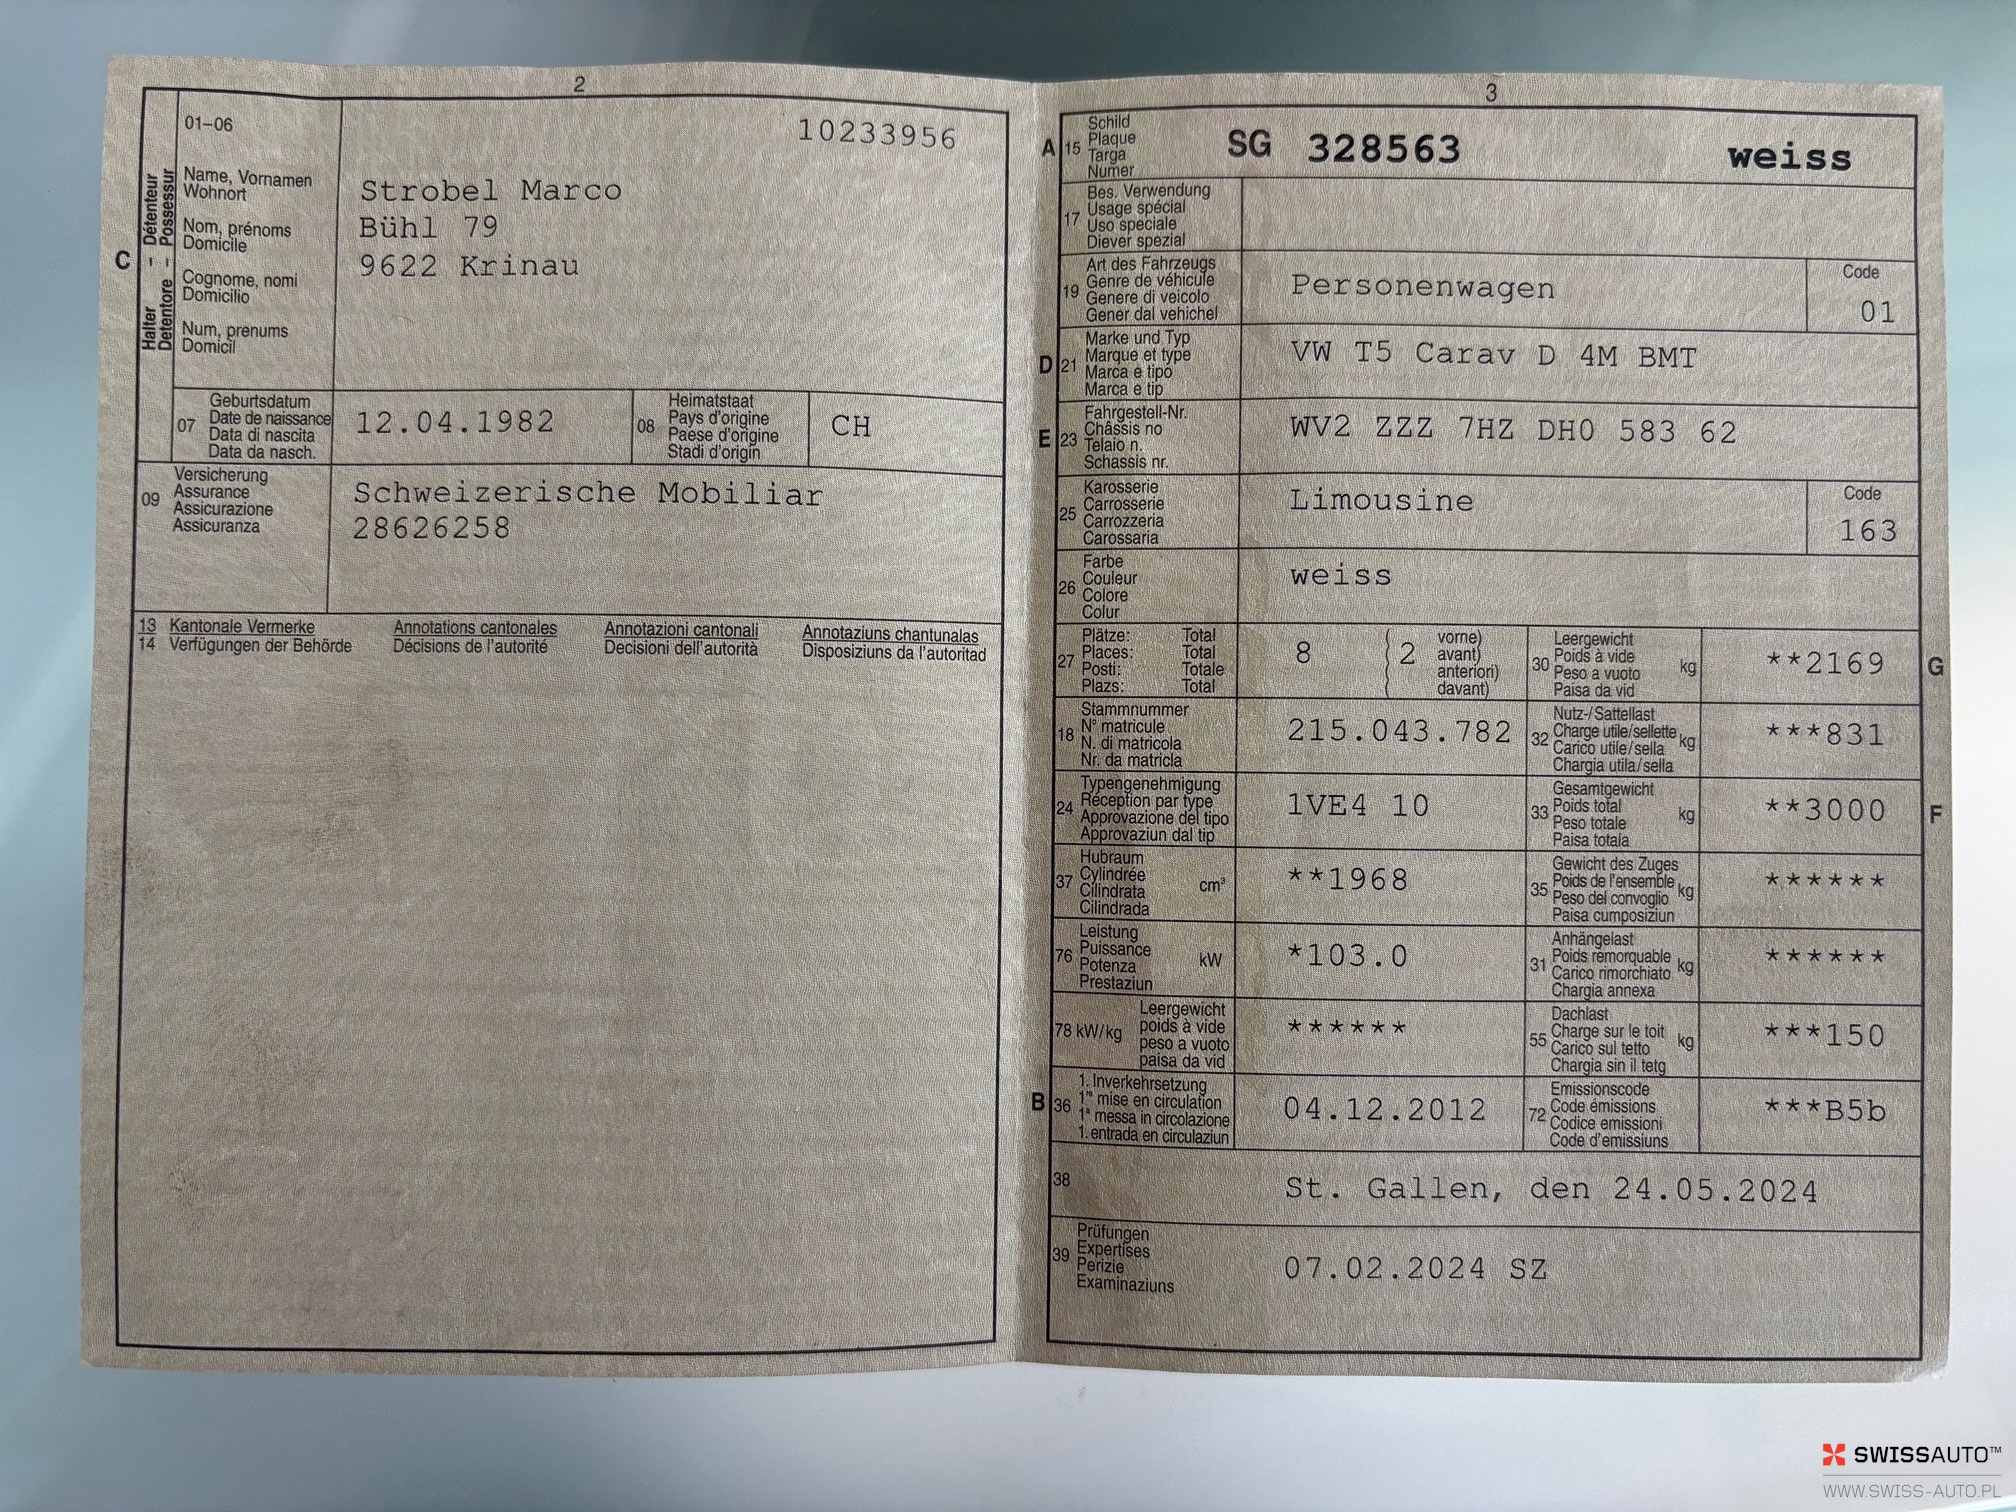 2
01–06
10233956
C
Halter – Détenteur
Detentore – Possessur
Name, Vornamen
Wohnort
Nom, prénoms
Domicile
Cognome, nomi
Domicilio
Num, prenums
Domicil
Strobel Marco
Bühl 79
9622 Krinau
07
Geburtsdatum
Date de naissance
Data di nascita
Data da nasch.
12.04.1982
08
Heimatstaat
Pays d'origine
Paese d'origine
Stadi d'origin
CH
09
Versicherung
Assurance
Assicurazione
Assicuranza
Schweizerische Mobiliar
28626258
13 Kantonale Vermerke Annotations cantonales Annotazioni cantonali Annotaziuns chantunalas
14 Verfügungen der Behörde Décisions de l'autorité Decisioni dell'autorità Disposiziuns da l'autoritad
3
A 15
Schild
Plaque
Targa
Numer
SG 328563 weiss
17
Bes. Verwendung
Usage spécial
Uso speciale
Diever spezial
19
Art des Fahrzeugs
Genre de véhicule
Genere di veicolo
Gener dal vehichel
Personenwagen
Code
01
D 21
Marke und Typ
Marque et type
Marca e tipo
Marca e tip
VW T5 Carav D 4M BMT
E 23
Fahrgestell-Nr.
Châssis no
Telaio n.
Schassis nr.
WV2 ZZZ 7HZ DH0 583 62
25
Karosserie
Carrosserie
Carrozzeria
Carossaria
Limousine
Code
163
26
Farbe
Couleur
Colore
Colur
weiss
27
Plätze: Total
Places: Total
Posti: Totale
Plazs: Total
8 ( 2
vorne)
avant)
anteriori)
davant)
30
Leergewicht
Poids à vide
Peso a vuoto
Paisa da vid
kg
**2169
G
18
Stammnummer
N° matricule
N. di matricola
Nr. da matricla
215.043.782
32
Nutz-/Sattellast
Charge utile/sellette
Carico utile/sella
Chargia utila/sella
kg
***831
24
Typengenehmigung
Réception par type
Approvazione del tipo
Approvaziun dal tip
1VE4 10
33
Gesamtgewicht
Poids total
Peso totale
Paisa totala
kg
**3000
F
37
Hubraum
Cylindrée
Cilindrata
Cilindrada
cm³
**1968
35
Gewicht des Zuges
Poids de l'ensemble
Peso del convoglio
Paisa cumposiziun
kg
******
76
Leistung
Puissance
Potenza
Prestaziun
kW
*103.0
31
Anhängelast
Poids remorquable
Carico rimorchiato
Chargia annexa
kg
******
78 kW/kg
Leergewicht
poids à vide
peso a vuoto
paisa da vid
******
55
Dachlast
Charge sur le toit
Carico sul tetto
Chargia sin il tetg
kg
***150
B 36
1. Inverkehrsetzung
1re mise en circulation
1a messa in circolazione
1. entrada en circulaziun
04.12.2012
72
Emissionscode
Code émissions
Codice emissioni
Code d'emissiuns
***B5b
38
St. Gallen, den 24.05.2024
39
Prüfungen
Expertises
Perizie
Examinaziuns
07.02.2024 SZ
SWISSAUTO™
WWW.SWISS-AUTO.PL